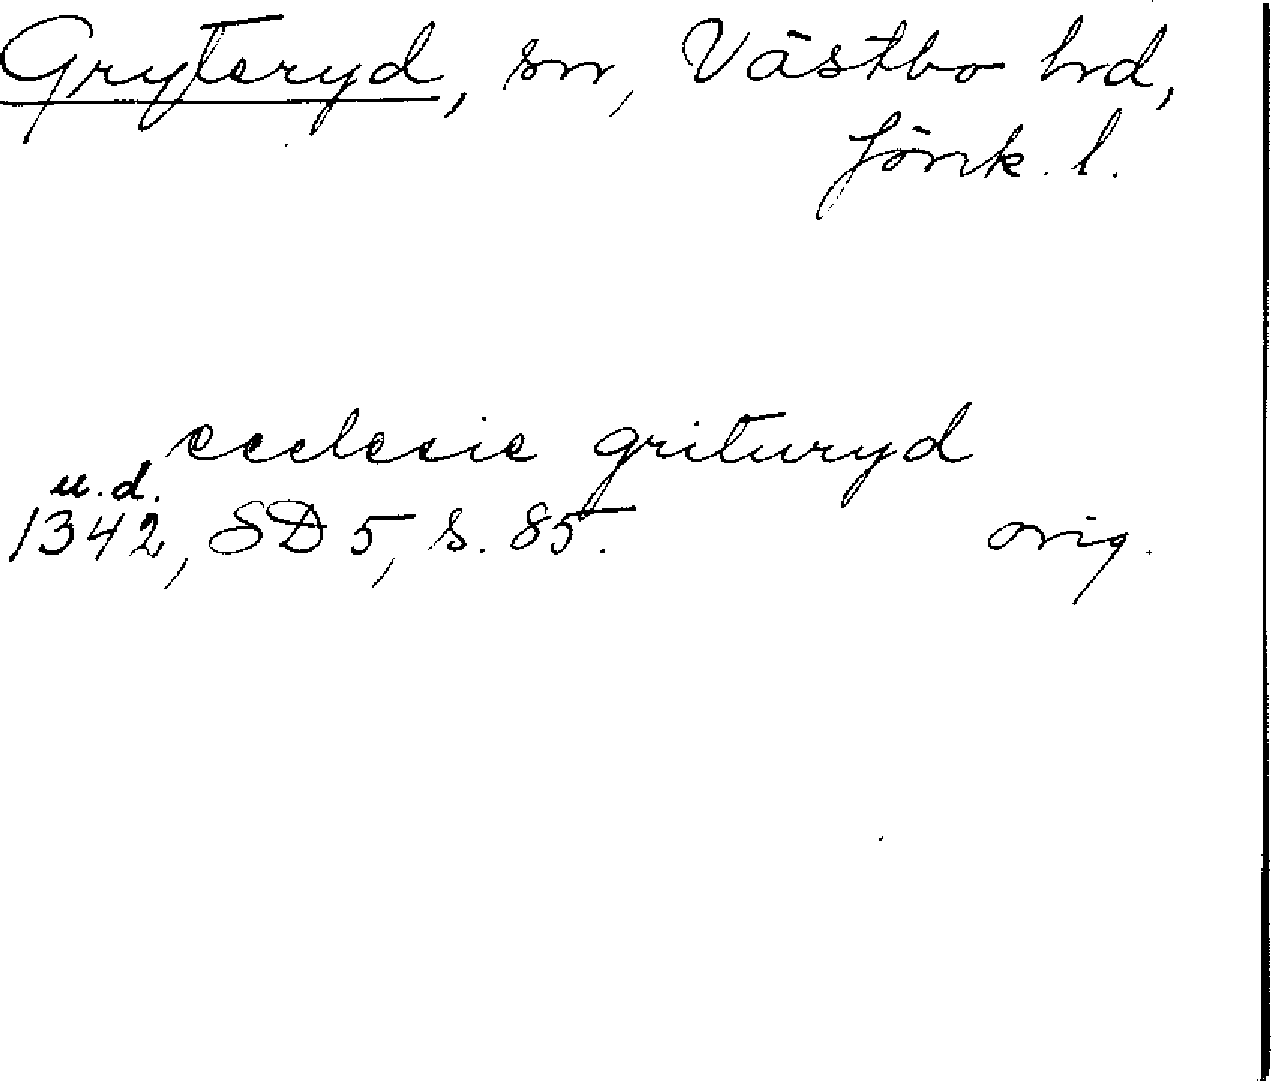 Gryteryd, sn, Västbo hrd,
Jönk. l.
ecclesie grituryd
u.d.
1342, SD 5, s. 85. orig.